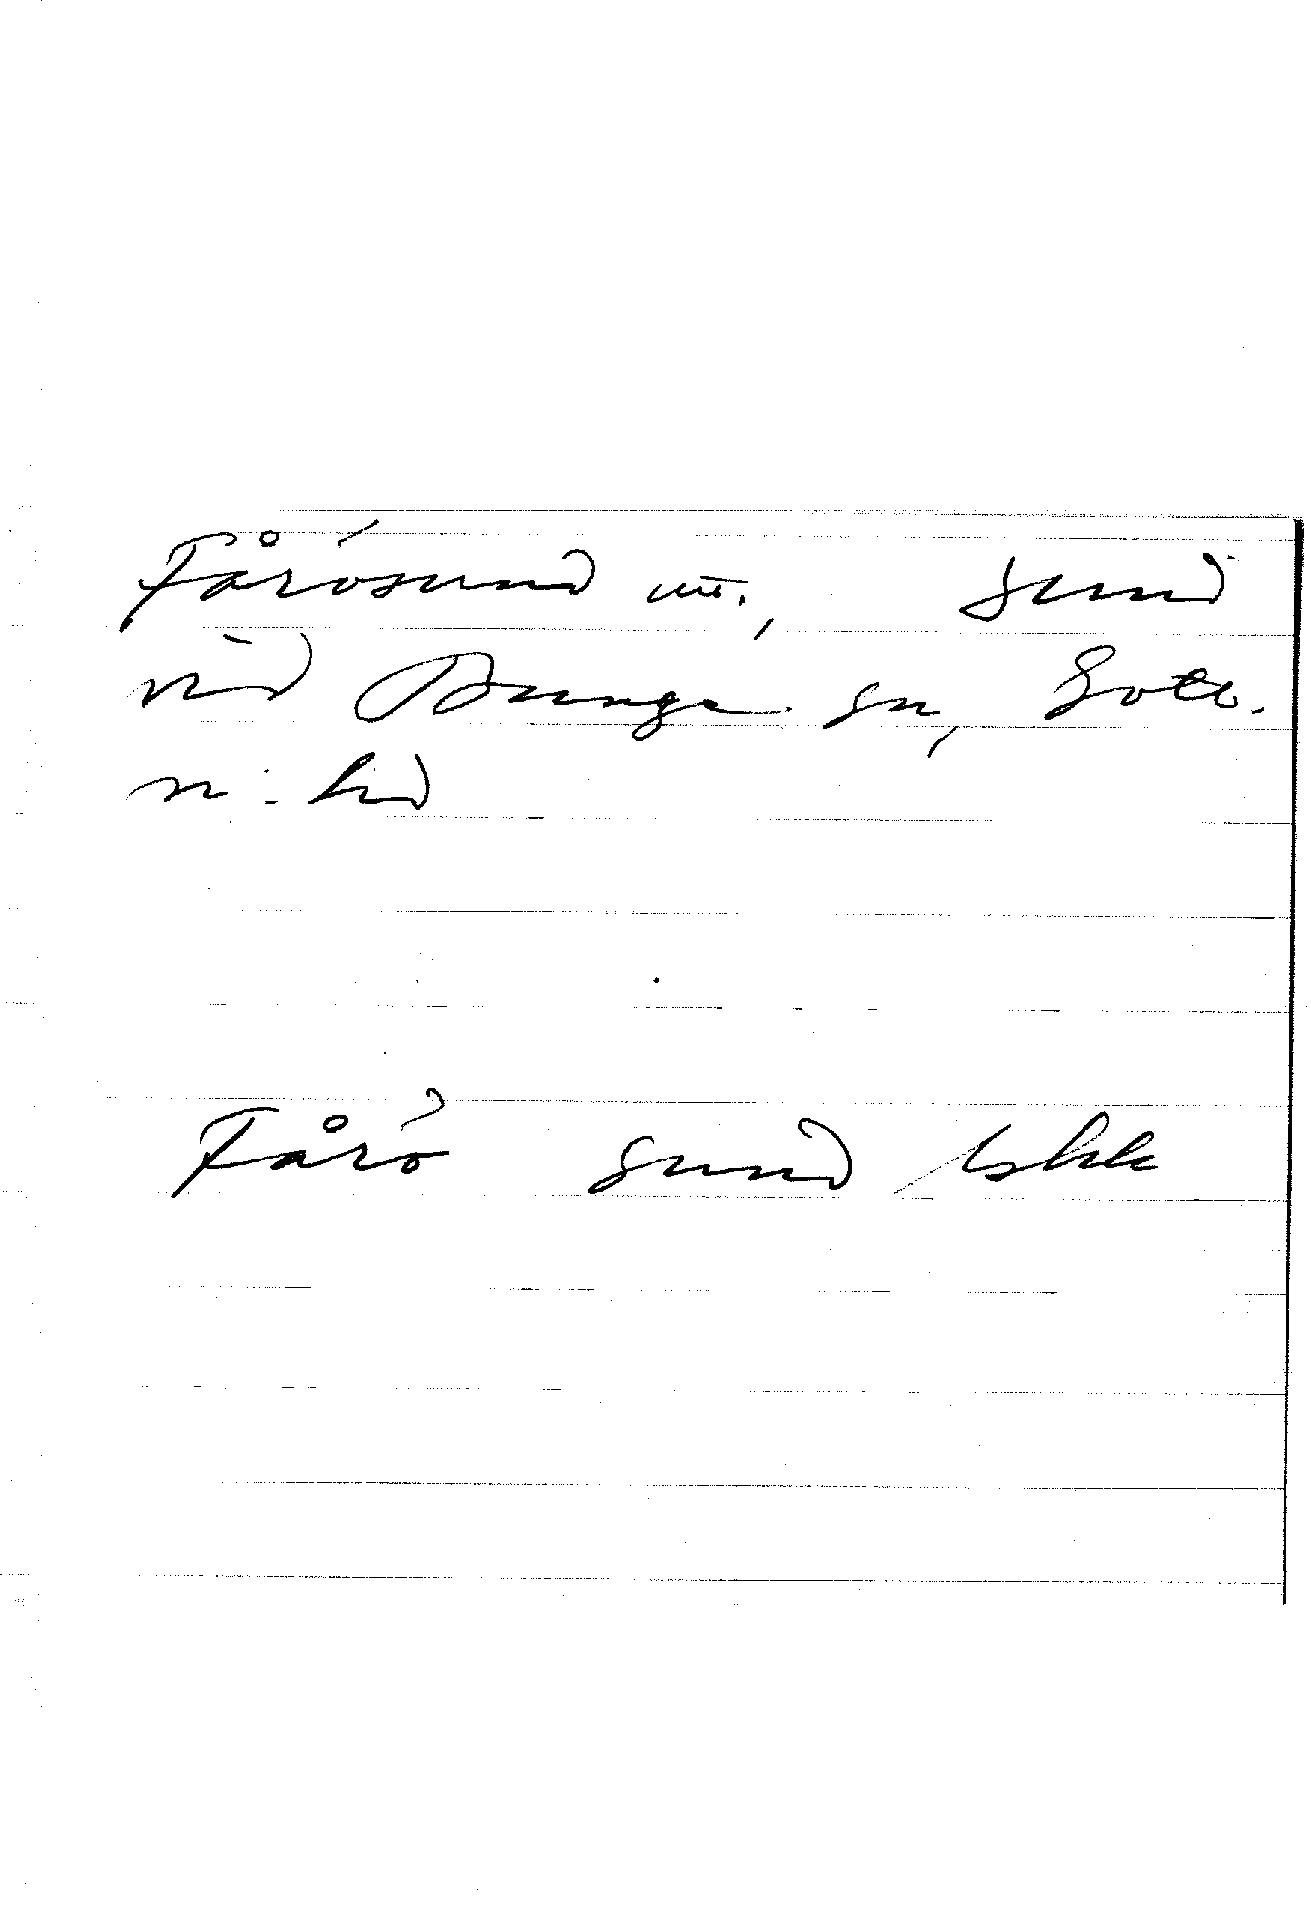 Fårösund m., sund
vid Bunge sn, Gotl.
n. hd
Fårö sund